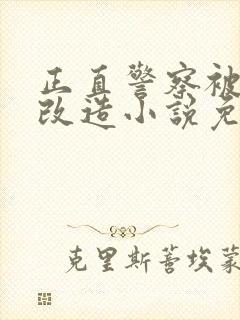 正直警察被
改造小説免
克里斯蒂埃蒙